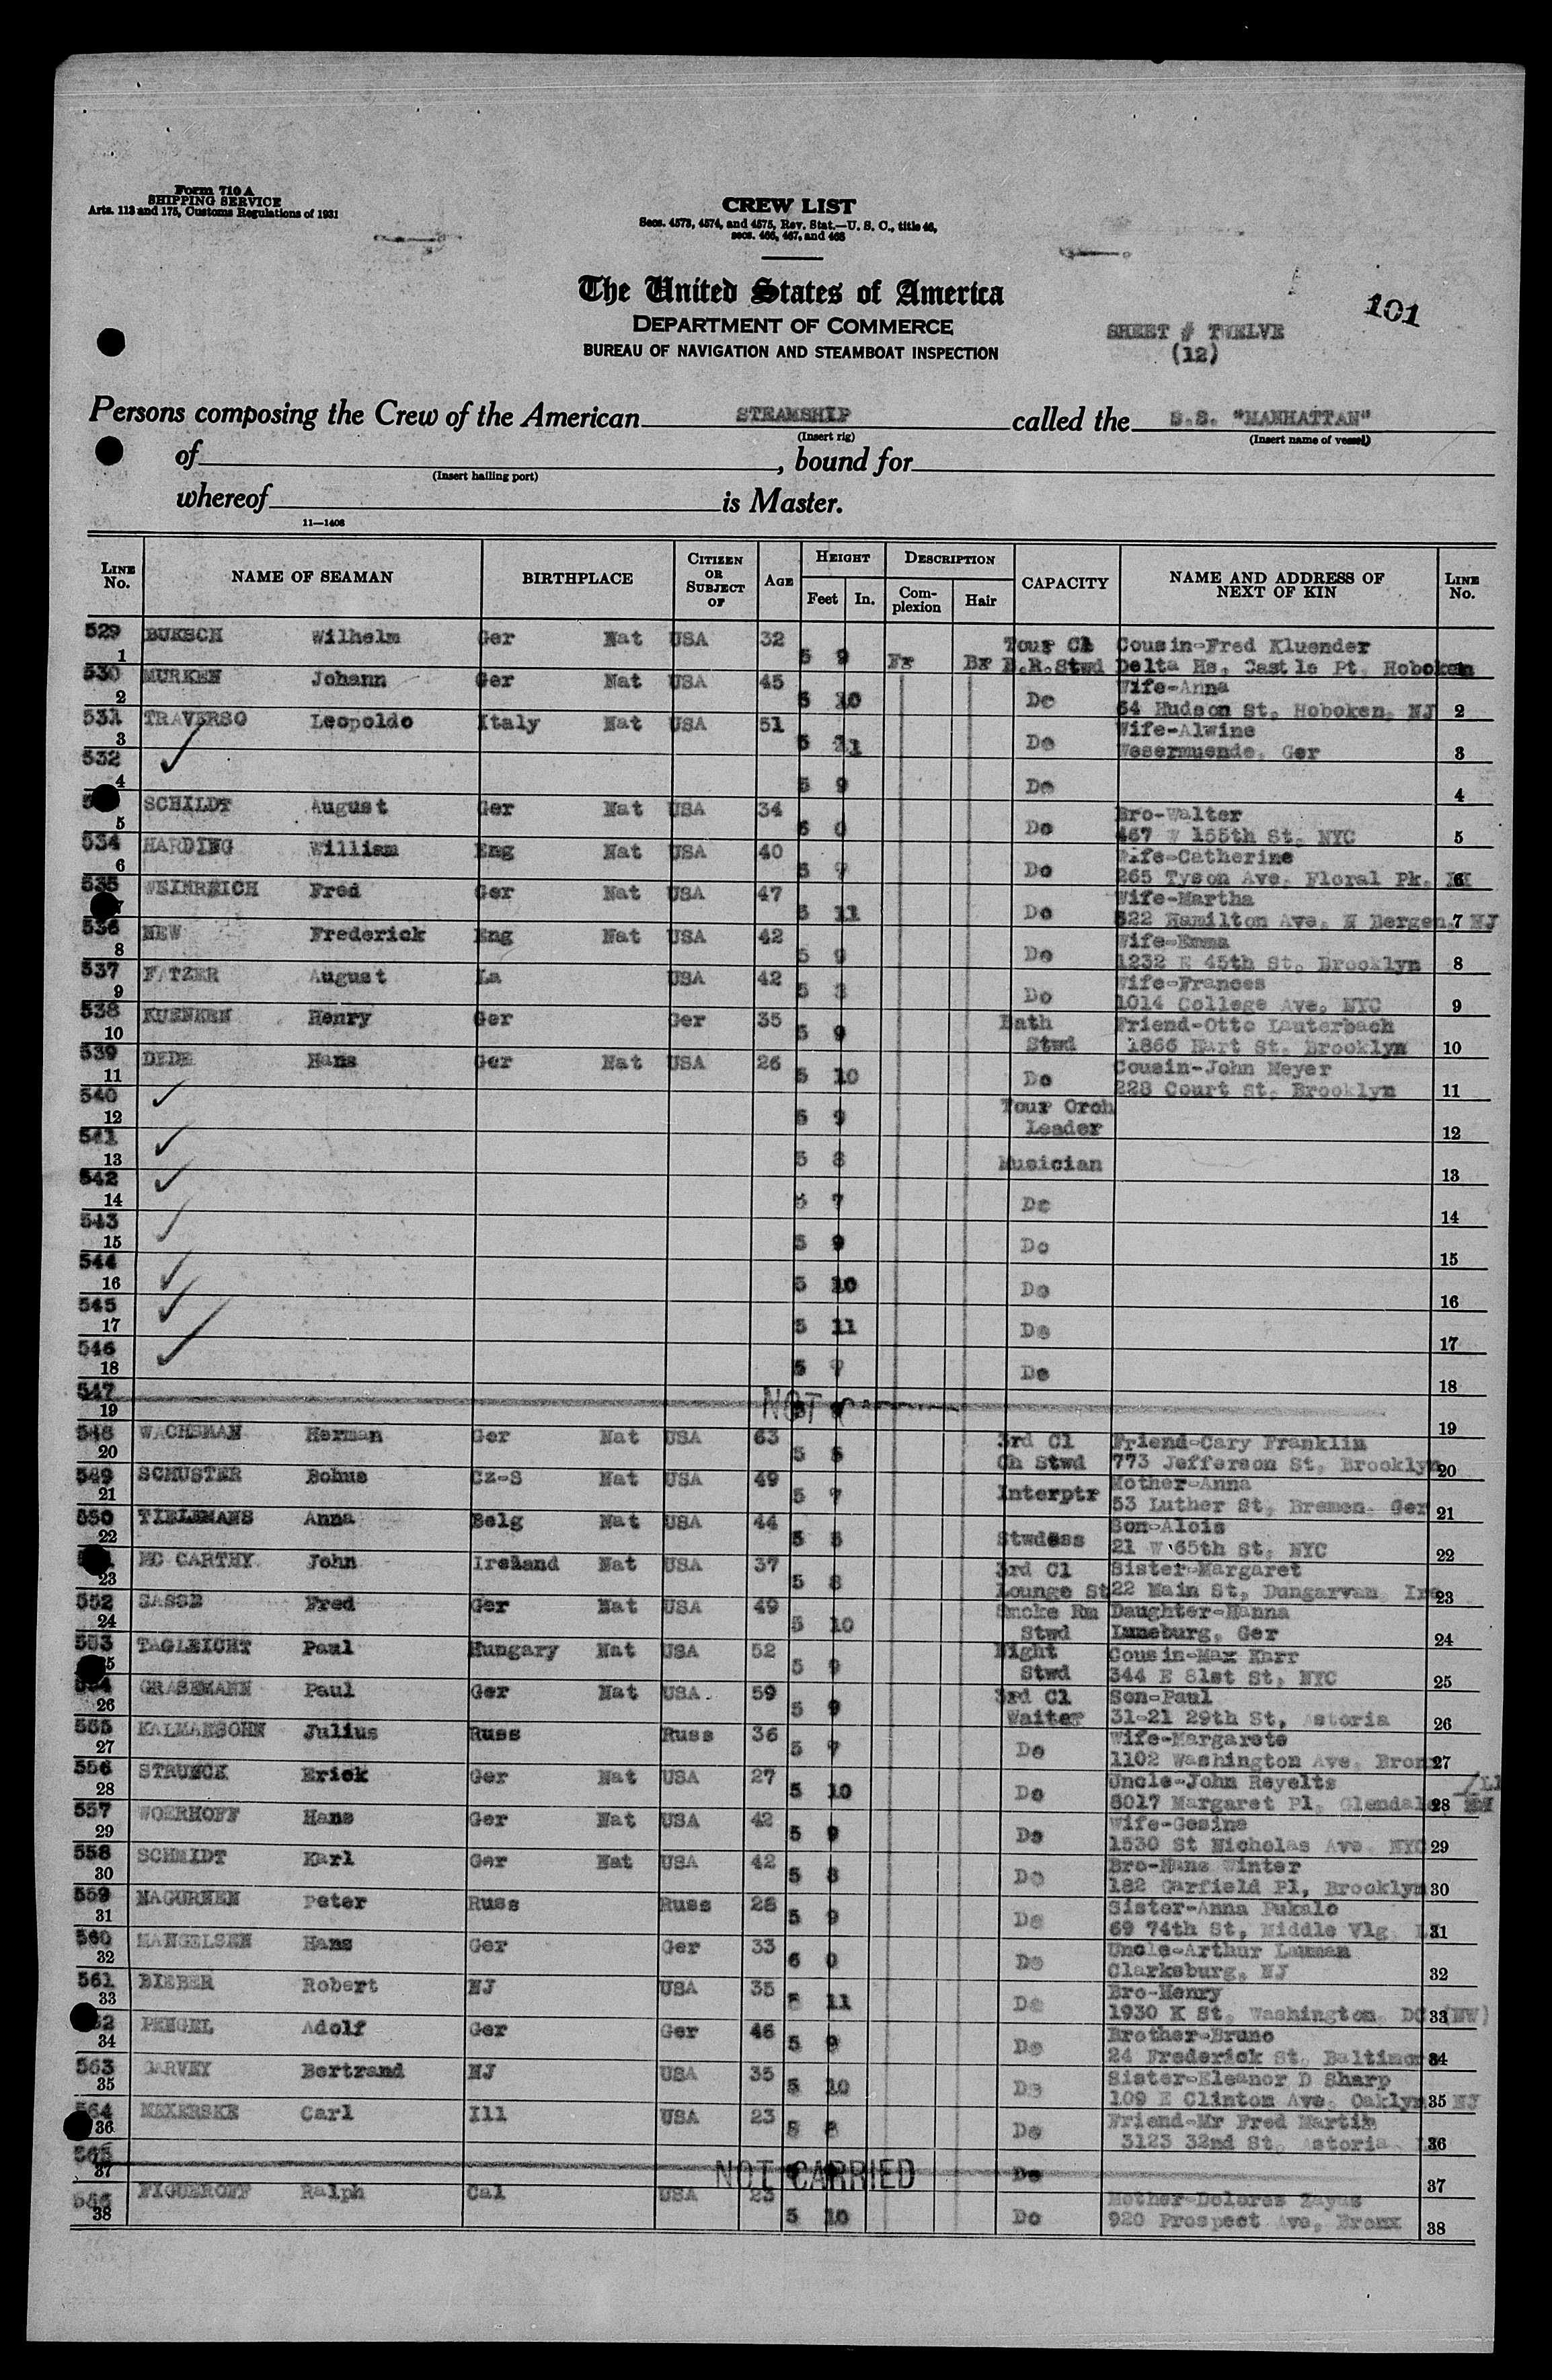 Form 710 A
SHIPPING SERVICE
Arts. 113 and 175, Customs Regulations of 1931
CREW LIST
Secs. 4573, 4574, and 4575, Rev. Stat.—U. S. C., title 46,
secs. 466, 467, and 468
The United States of America
DEPARTMENT OF COMMERCE
BUREAU OF NAVIGATION AND STEAMBOAT INSPECTION
101
SHEET # TWELVE
(12)
Persons composing the Crew of the American STEAMSHIP called the S.S. "MANHATTAN"
(Insert rig) (Insert name of vessel)
of , bound for
(Insert hailing port)
whereof is Master.
11—1408
LINE No. NAME OF SEAMAN BIRTHPLACE CITIZEN OR SUBJECT OF AGE HEIGHT Feet In. DESCRIPTION Complexion Hair CAPACITY NAME AND ADDRESS OF NEXT OF KIN LINE No.
529 BUKSCH Wilhelm Ger Nat USA 32 Tour Cl Cousin-Fred Kluender
1 5 9 Fr Br D.R.Stwd Delta Hs, Castle Pt, Hoboken
530 MURKEN Johann Ger Nat USA 45 Wife-Anna
2 5 10 Do 64 Hudson St, Hoboken, NJ 2
531 TRAVERSO Leopoldo Italy Nat USA 51 Wife-Alwine
3 5 11 Do Wesermuende, Ger 3
532
4 5 9 Do 4
SCHILDT August Ger Nat USA 34 Bro-Walter
5 6 0 Do 467 W 155th St, NYC 5
534 HARDING William Eng Nat USA 40 Wife-Catherine
6 5 7 Do 265 Tyson Ave, Floral Pk, 6
535 WEINREICH Fred Ger Nat USA 47 Wife-Martha
7 5 11 Do 522 Hamilton Ave, N Bergen, NJ 7
536 NEW Frederick Eng Nat USA 42 Wife-Emma
8 5 9 Do 1232 E 45th St, Brooklyn 8
537 FATZER August La USA 42 Wife-Frances
9 5 3 Do 1014 College Ave, NYC 9
538 KUENKEN Henry Ger Ger 35 Bath Friend-Otto Lauterbach
10 5 9 Stwd 1866 Hart St, Brooklyn 10
539 DEDE Hans Ger Nat USA 26 Cousin-John Meyer
11 5 10 Do 228 Court St, Brooklyn 11
540 Tour Orch
12 5 9 Leader 12
541
13 5 8 Musician 13
542
14 5 7 Do 14
543
15 5 9 Do 15
544
16 5 10 Do 16
545
17 5 11 Do 17
546
18 5 7 Do 18
547 NOT
19 19
548 WACHSMAN Herman Ger Nat USA 63 3rd Cl Friend-Cary Franklin
20 5 5 Ch Stwd 773 Jefferson St, Brooklyn 20
549 SCHUSTER Bohus Cz-S Nat USA 49 Mother-Anna
21 5 7 Interptr 53 Luther St, Bremen, Ger 21
550 TIELEMANS Anna Belg Nat USA 44 Son-Alois
22 5 5 Stwdess 21 W 65th St, NYC 22
MC CARTHY John Ireland Nat USA 37 3rd Cl Sister-Margaret
23 5 8 Lounge St 22 Main St, Dungarvan, Ire 23
552 SASSE Fred Ger Nat USA 49 Smoke Rm Daughter-Hanna
24 5 10 Stwd Luneburg, Ger 24
553 TAGLEICHT Paul Hungary Nat USA 52 Night Cousin-Max Karr
5 9 Stwd 344 E 81st St, NYC 25
554 GRASEMANN Paul Ger Nat USA 59 3rd Cl Son-Paul
26 5 9 Waiter 31-21 29th St, Astoria 26
555 KALMANSOHN Julius Russ Russ 36 Wife-Margarete
27 5 7 Do 1102 Washington Ave, Bronx 27
556 STRUNCK Erick Ger Nat USA 27 Uncle-John Reyelts
28 5 10 Do 8017 Margaret Pl, Glendale, 28
557 WOERHOFF Hans Ger Nat USA 42 Wife-Gesine
29 5 9 Do 1530 St Nicholas Ave, NYC 29
558 SCHMIDT Karl Ger Nat USA 42 Bro-Hans Winter
30 5 8 Do 182 Garfield Pl, Brooklyn 30
559 MAGURNEN Peter Russ Russ 28 Sister-Anna Pukalo
31 5 9 Do 69 74th St, Middle Vlg, 31
560 MANGELSEN Hans Ger Ger 33 Uncle-Arthur Lauman
32 6 0 Do Clarksburg, NJ 32
561 BIEBER Robert NJ USA 35 Bro-Henry
33 5 11 Do 1930 K St, Washington, DC (NW) 33
PENGEL Adolf Ger Ger 46 Brother-Bruno
34 5 9 Do 24 Frederick St, Baltimore 34
563 GARVEY Bertrand NJ USA 35 Sister-Eleanor D Sharp
35 5 10 Do 109 E Clinton Ave, Oaklyn NJ 35
564 MEXERSKE Carl Ill USA 23 Friend-Mr Fred Martin
36 5 8 Do 3123 32nd St, Astoria 36
565 NOT CARRIED
37 Do 37
566 FIGUEROFF Ralph Cal USA 23 Mother-Dolores Zayas
38 5 10 Do 920 Prospect Ave, Bronx 38